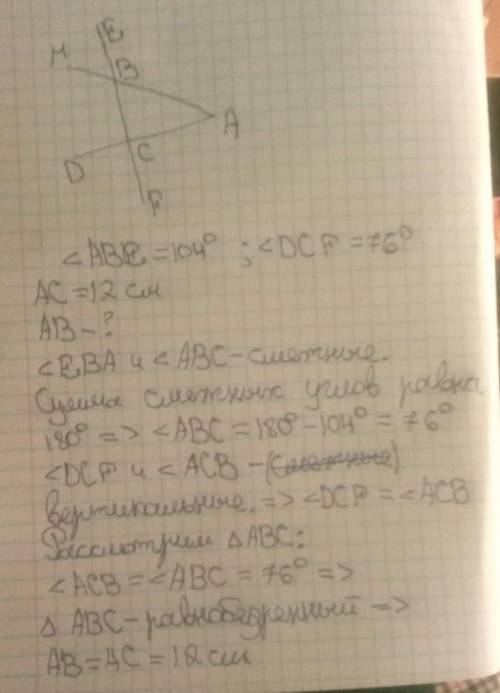 E
M B
A
D C
F
∠ABE = 104° ; ∠DCF = 76°
AC = 12 см
AB - ?
∠EBA и ∠ABC - смежные.
Сумма смежных углов равна
180° => ∠ABC = 180° - 104° = 76°
∠DCF и ∠ACB - (смежные)
вертикальные. => ∠DCF = ∠ACB
Рассмотрим △ABC:
∠ACB = ∠ABC = 76° =>
△ ABC - равнобедренный =>
AB = AC = 12 см